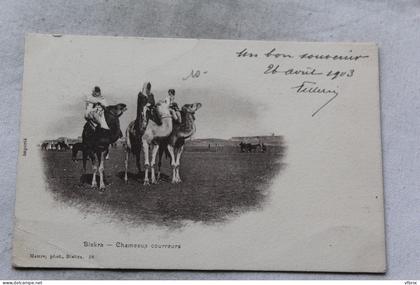 Un bon souvenir
26 avril 1903
10-
Biskra — Chameaux coureurs
Maure, phot., Biskra.